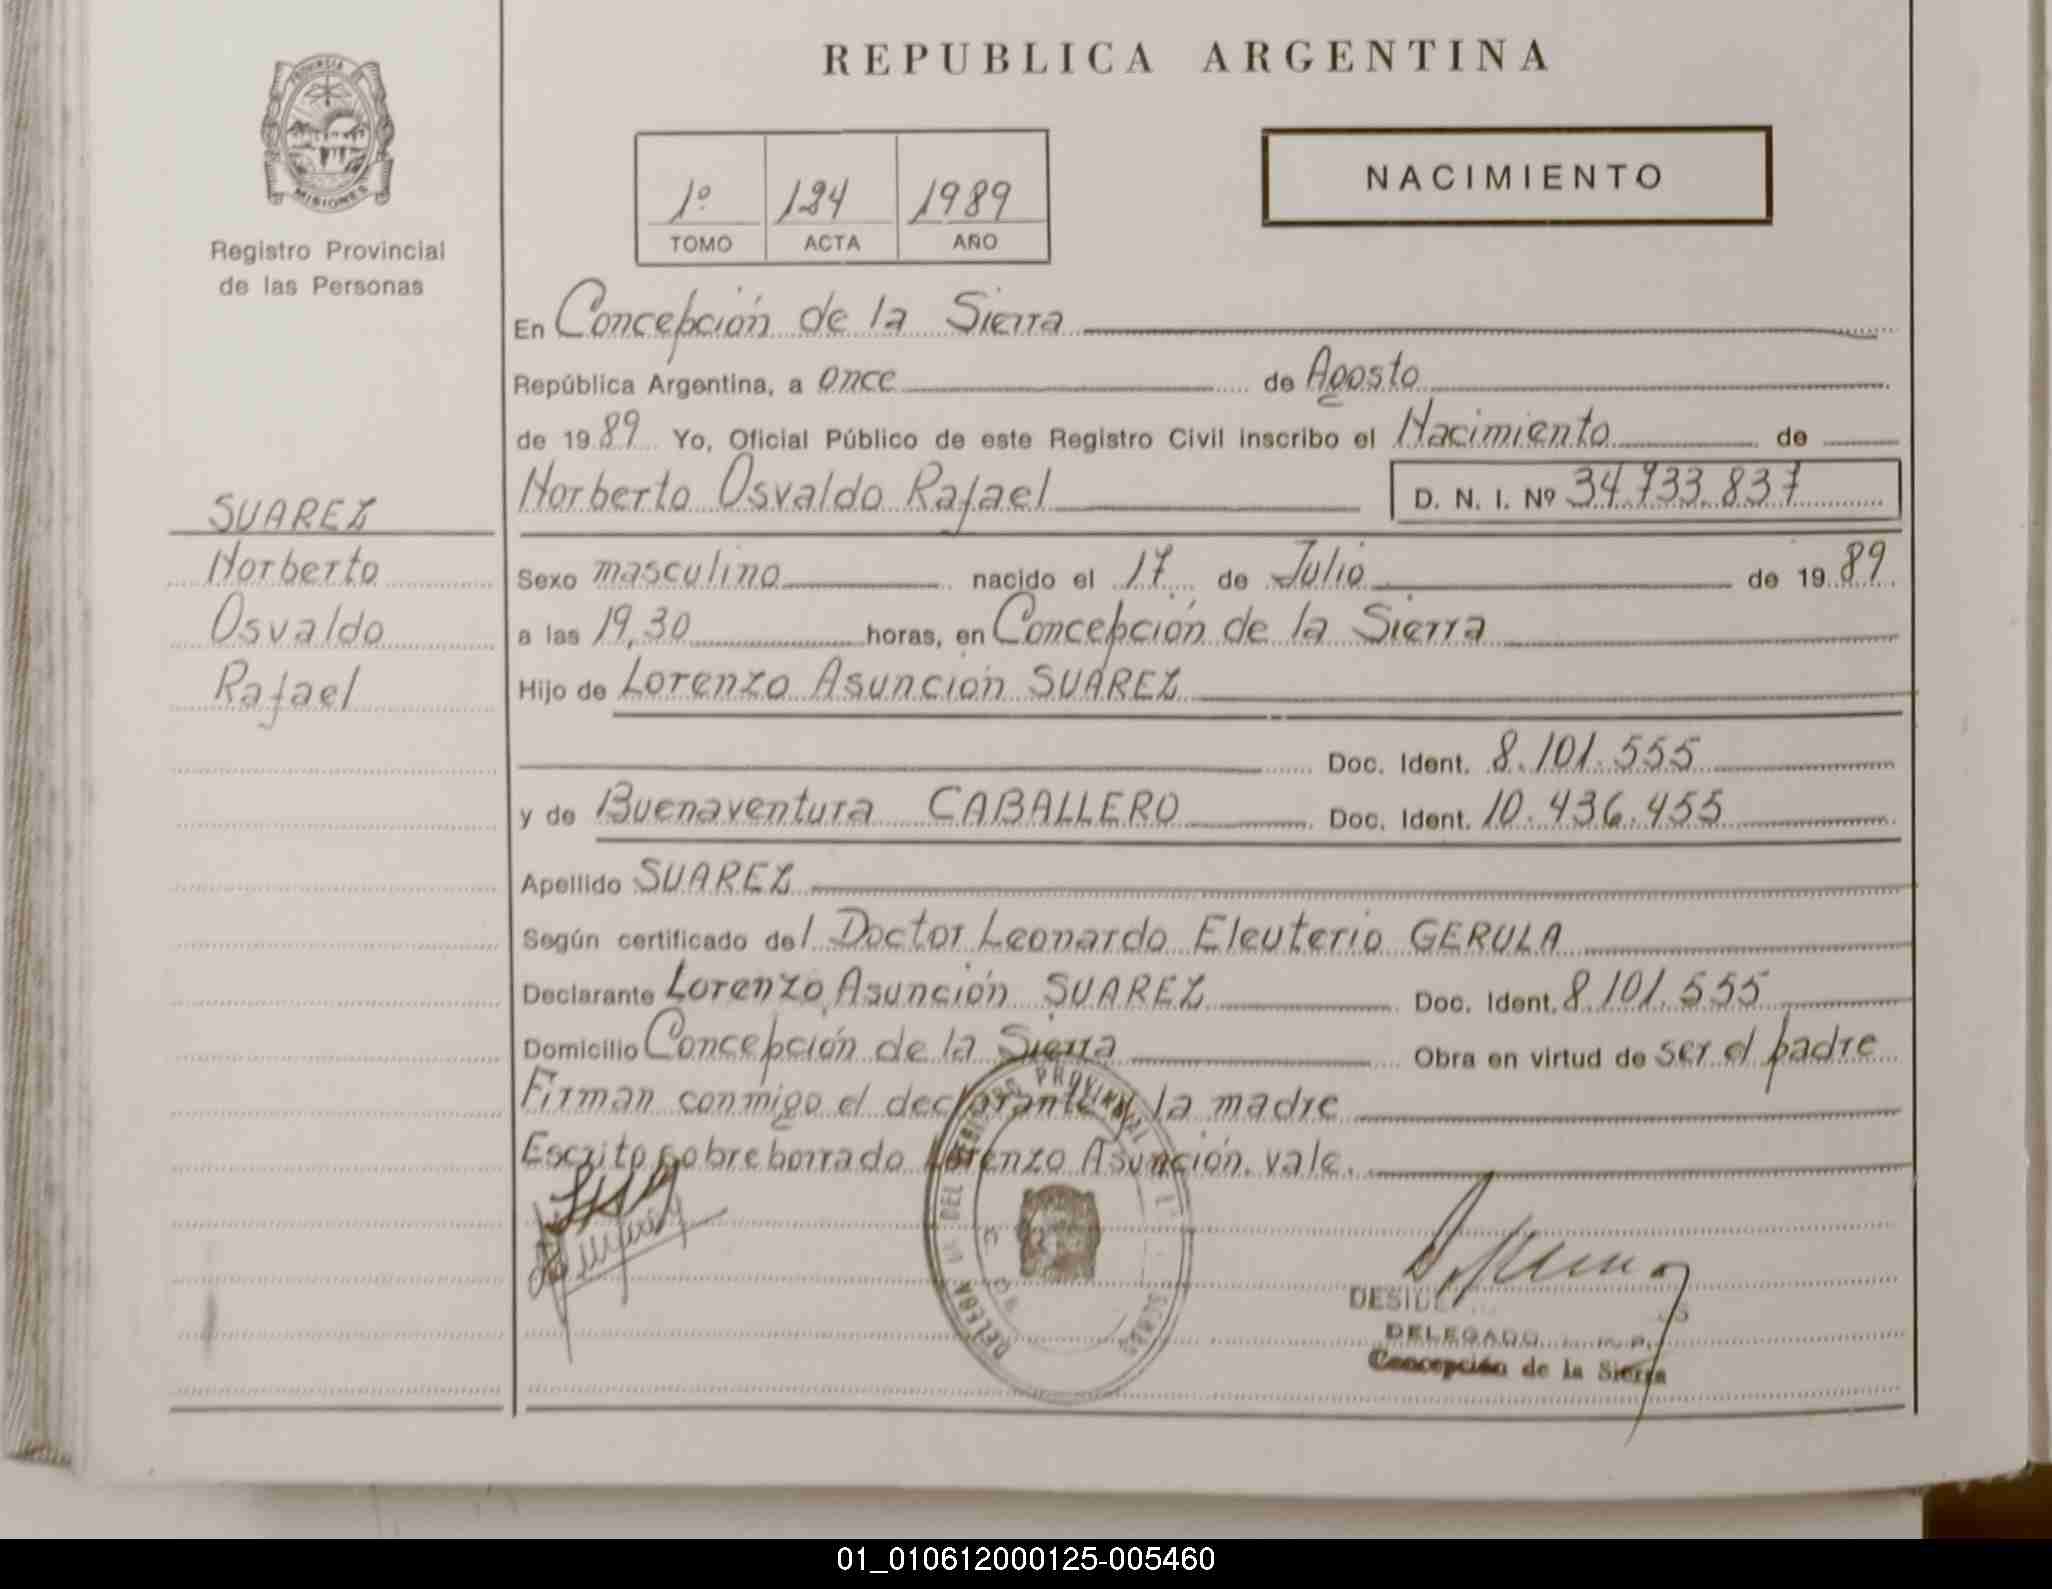 REPUBLICA ARGENTINA
PROVINCIA DE
MISIONES
Registro Provincial
de las Personas
1º 124 1989
TOMO ACTA AÑO
NACIMIENTO
En Concepción de la Sierra
República Argentina, a once de Agosto
de 1989 Yo, Oficial Público de este Registro Civil inscribo el Nacimiento de
Norberto Osvaldo Rafael D. N. I. Nº 34.733.837
SUAREZ
Norberto
Osvaldo
Rafael
Sexo masculino nacido el 17 de Julio de 1989
a las 19,30 horas, en Concepción de la Sierra
Hijo de Lorenzo Asunción SUAREZ
Doc. Ident. 8.101.555
y de Buenaventura CABALLERO Doc. Ident. 10.436.455
Apellido SUAREZ
Según certificado del Doctor Leonardo Eleuterio GERULA
Declarante Lorenzo Asunción SUAREZ Doc. Ident. 8.101.555
Domicilio Concepción de la Sierra Obra en virtud de ser el padre
Firman conmigo el declarante y la madre
Escrito sobre borrado Lorenzo Asunción. vale.
DELEGADO
Concepción de la Sierra
01_010612000125-005460